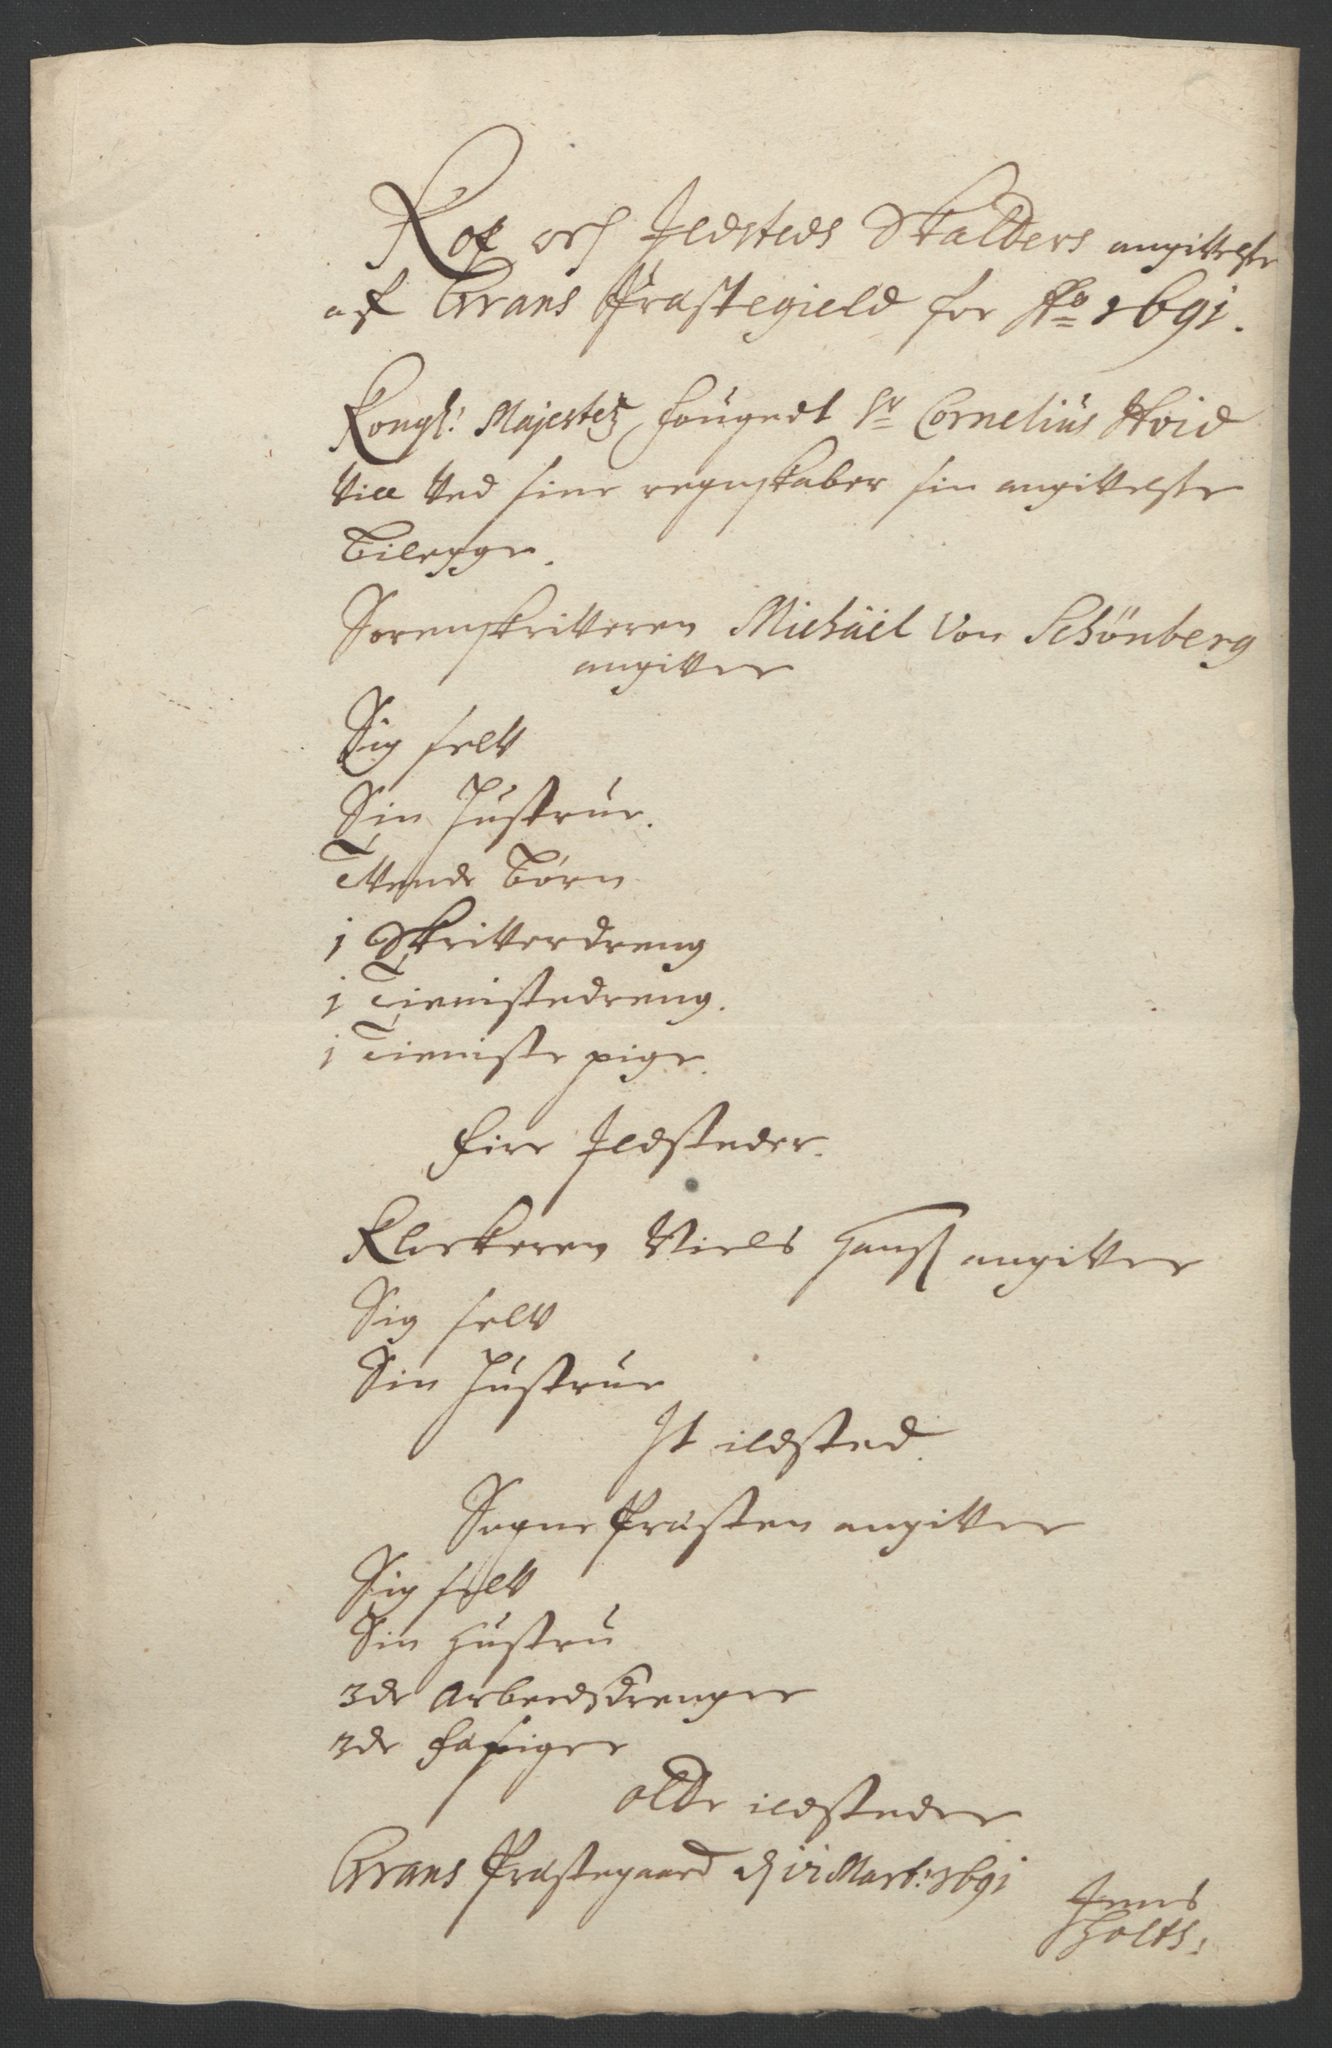 Kop och Ildsteds Skatters angivelse
af Grans Præstegield for Ao 1691.
Kongl: Majestetz fougedt Sr Cornelius Hvid
vill ved sine regnskaber sin angivelse
bilegge.
Sorenskriveren Michäel Von Schönberg
angiver
Sig selv
Sin Hustrue.
Tvende børn
1 Skriverdreng
1 Tienistedreng.
1 Tieniste pige.
Fire Ildsteder.
Klockeren Niels Hanss: angiver
Sig selv
Sin Hustrue
It ildsted.
Sogne Præsten angiver
Sig selv
Sin Hustru
3de Arbeidsdrenger
3de piger
Otte ildsteder
Grans Præstegaard d 12 Marti: 1691
Jens
Holts: